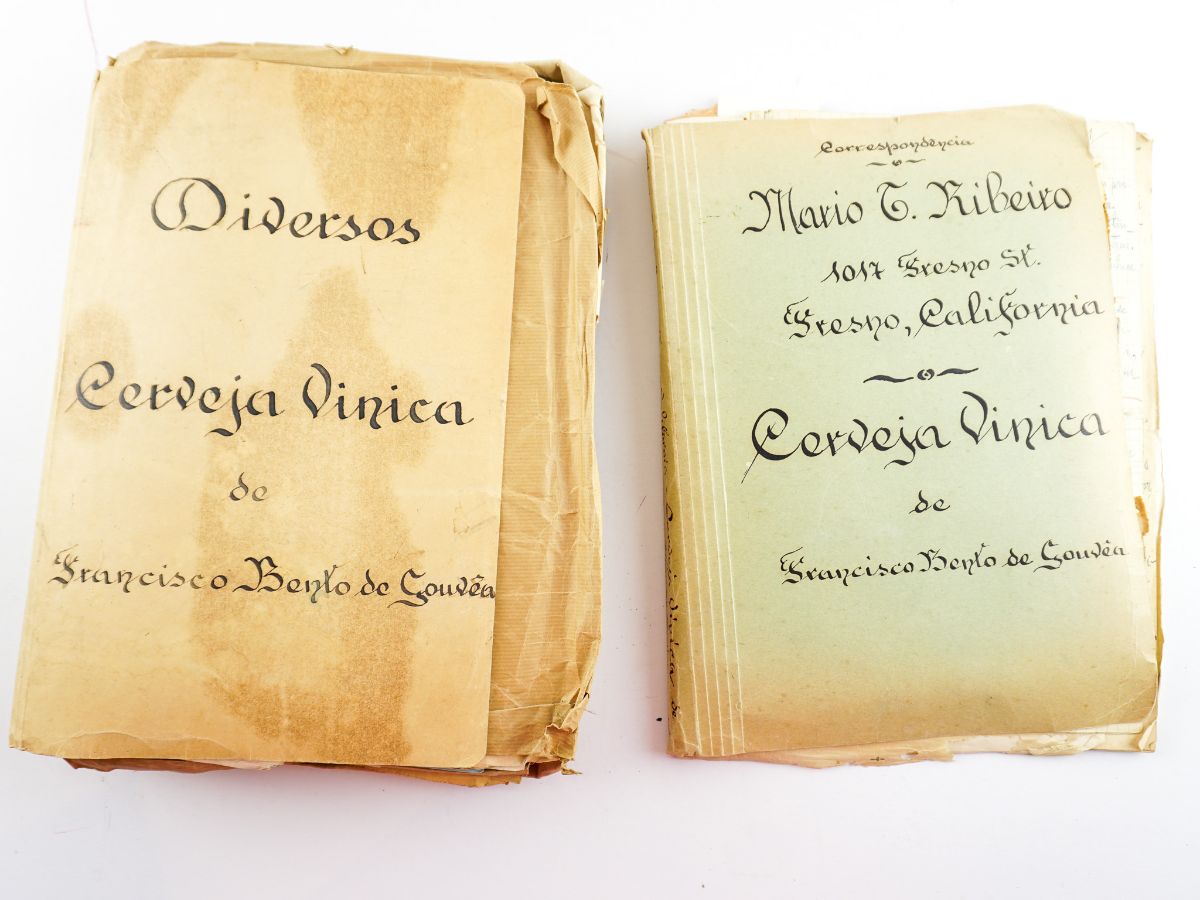 Diversos
Cerveja Vinica
de
Francisco Bento de Gouvêa
Correspondencia
Mario T. Ribeiro
1017 Fresno St.
Fresno, California
Cerveja Vinica
de
Francisco Bento de Gouvêa